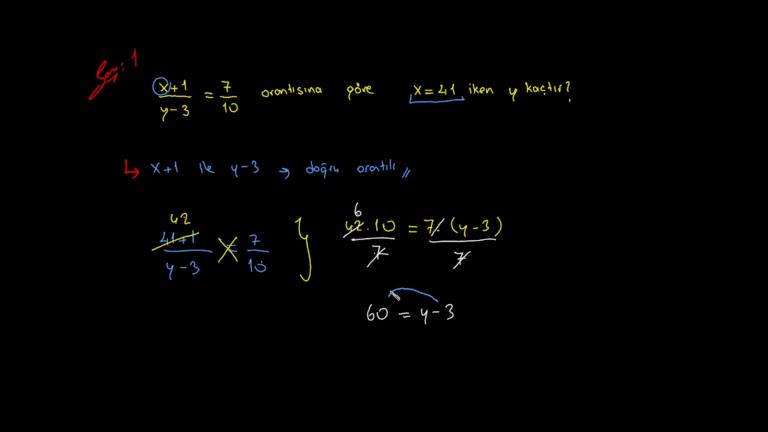 Soru: 1
x+1 / y-3 = 7/10 orantısına göre x=41 iken y kaçtır?
↳ x+1 ile y-3 → doğru orantılı //
42
41+1 / y-3 = 7/10 } 42·10 / 7 = 7·(y-3) / 7
6
60 = y-3